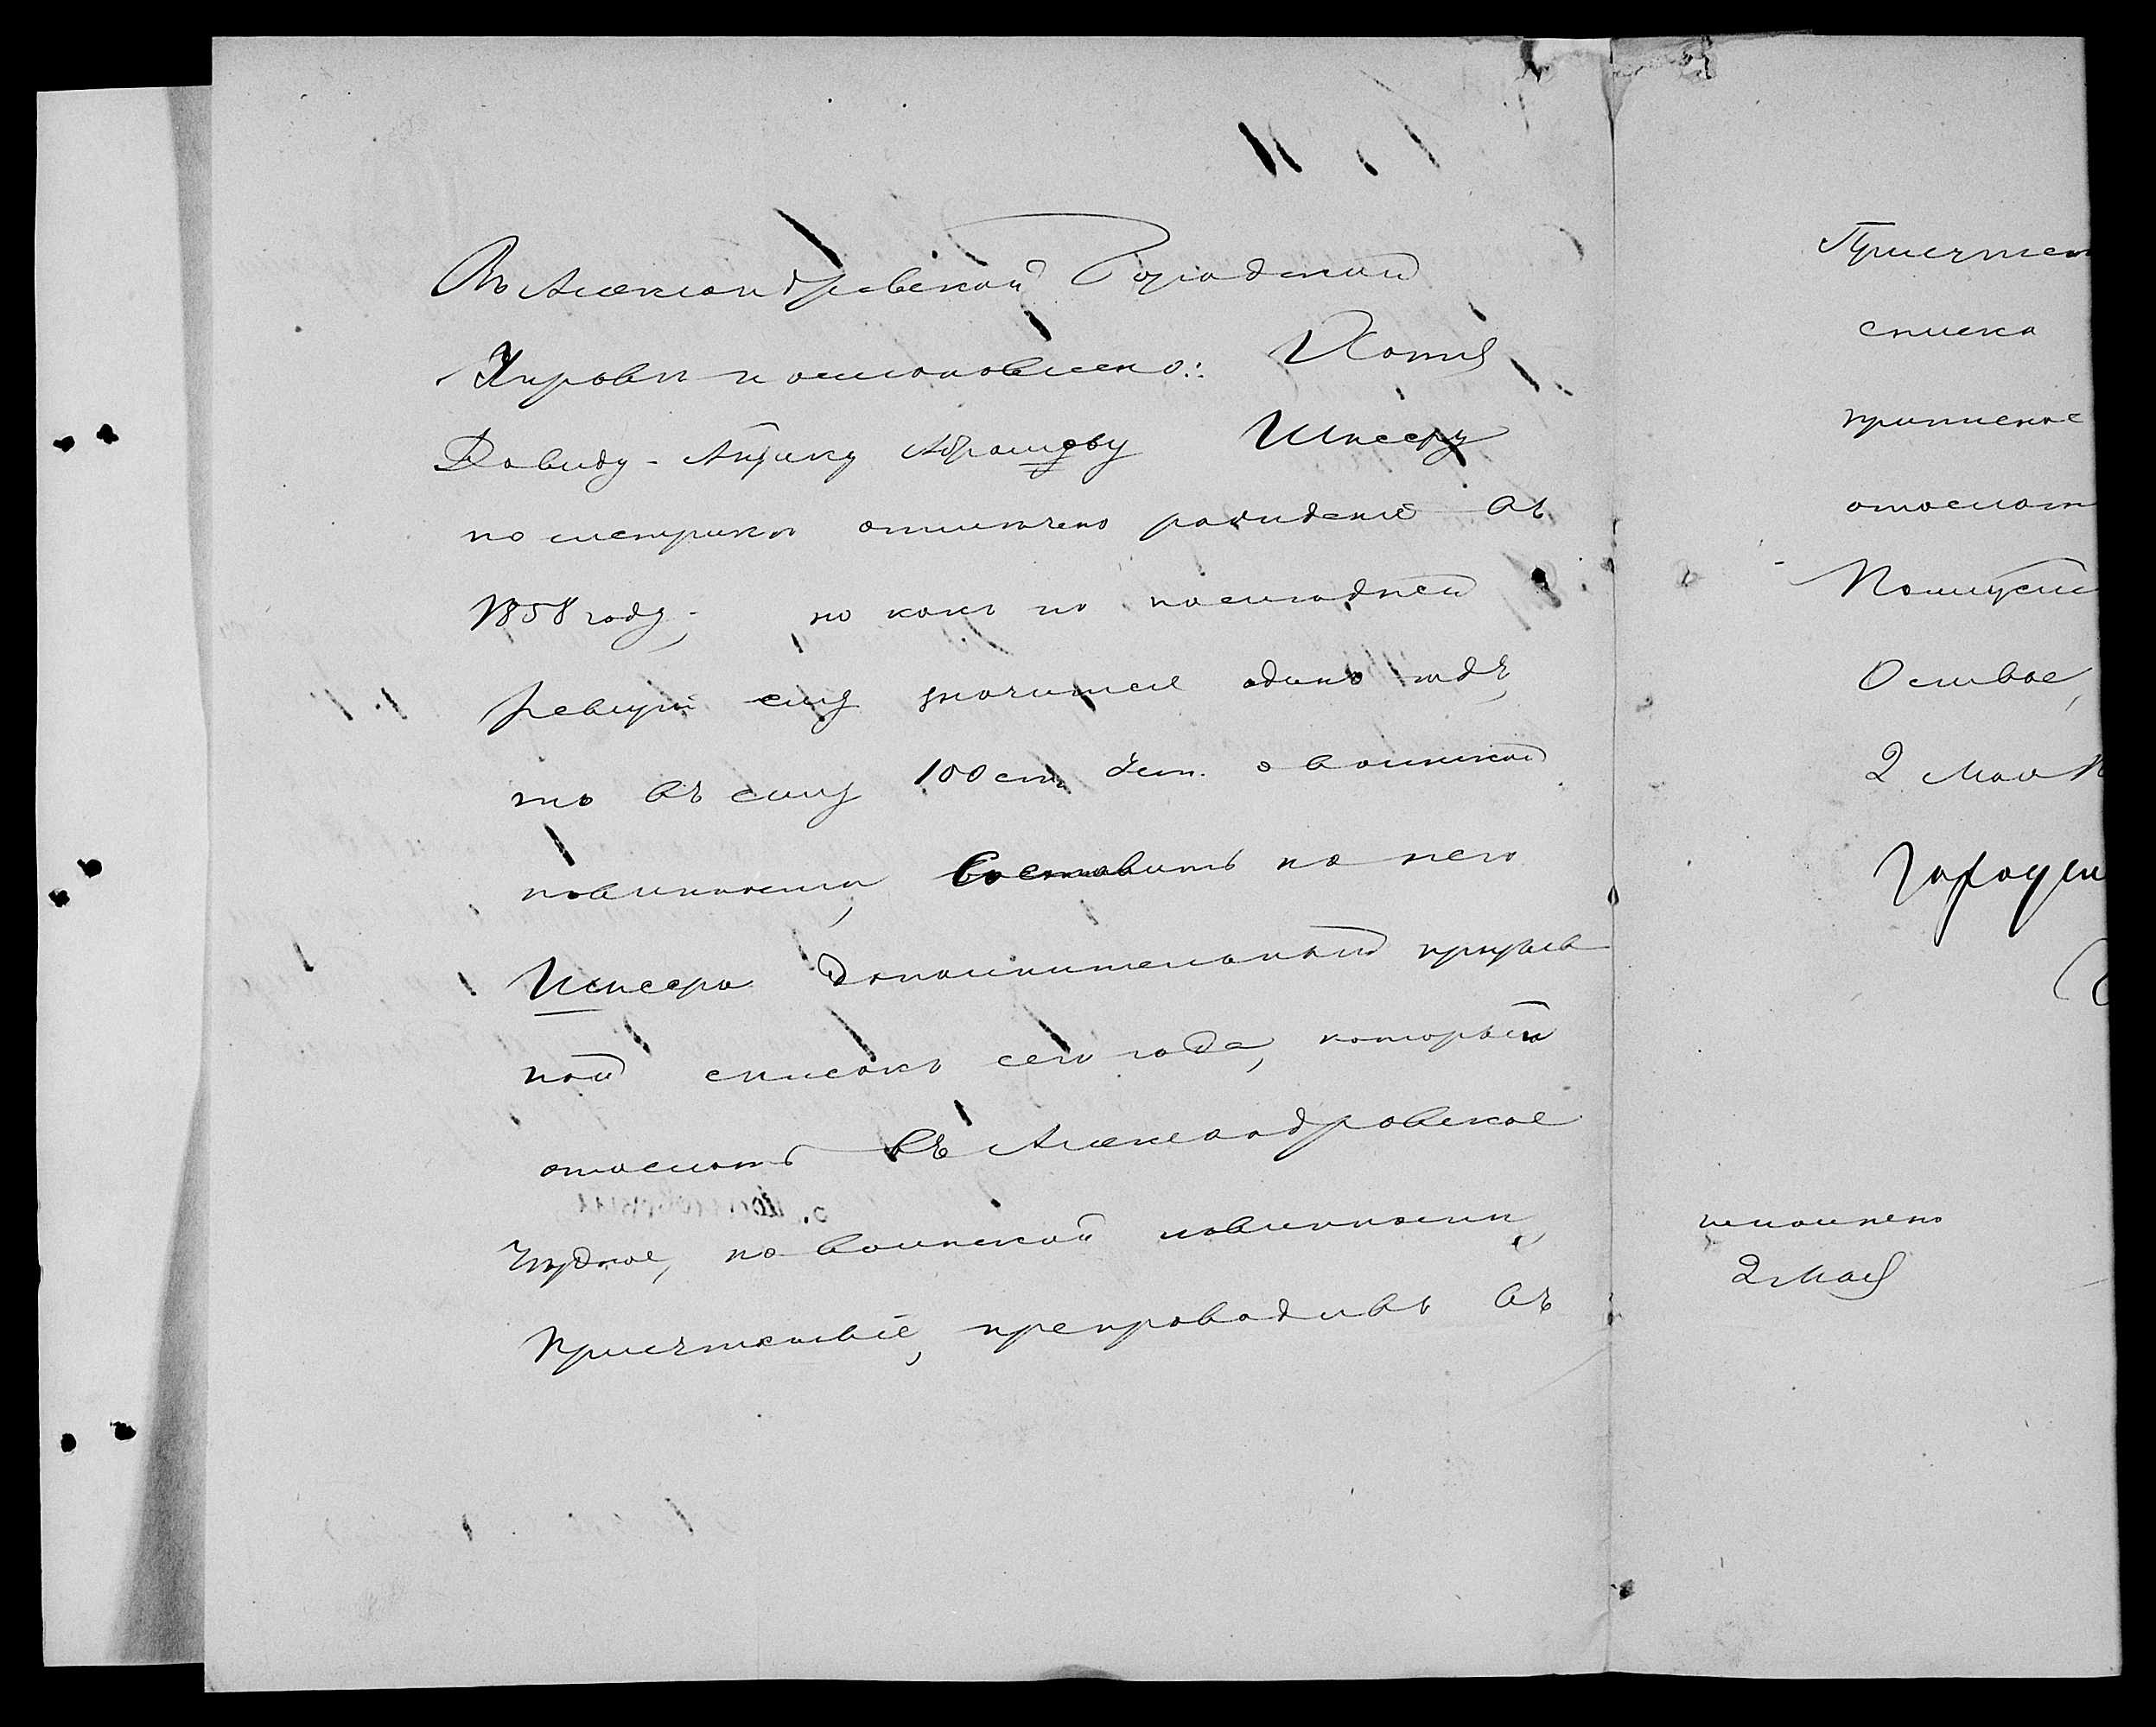 Въ Александровской Городской
Управѣ постановлено: Хотя
Давиду-Абрамову
по метрикѣ отмѣчено рожденіе въ
1858 году, но какъ по послѣдней
ревизіи ему значится одинъ годъ,
то въ силу 100 ст. Уст. о воинской
повинности, составить на него
дополнительный призыв
ной списокъ сего года, который
отослать въ Александровское
Уѣздное, по воинской повинности,
Присутствіе, препроводивъ въ
Присутст
списка
отослат
Полицейс
2 Мая
исполнено
2 Мая